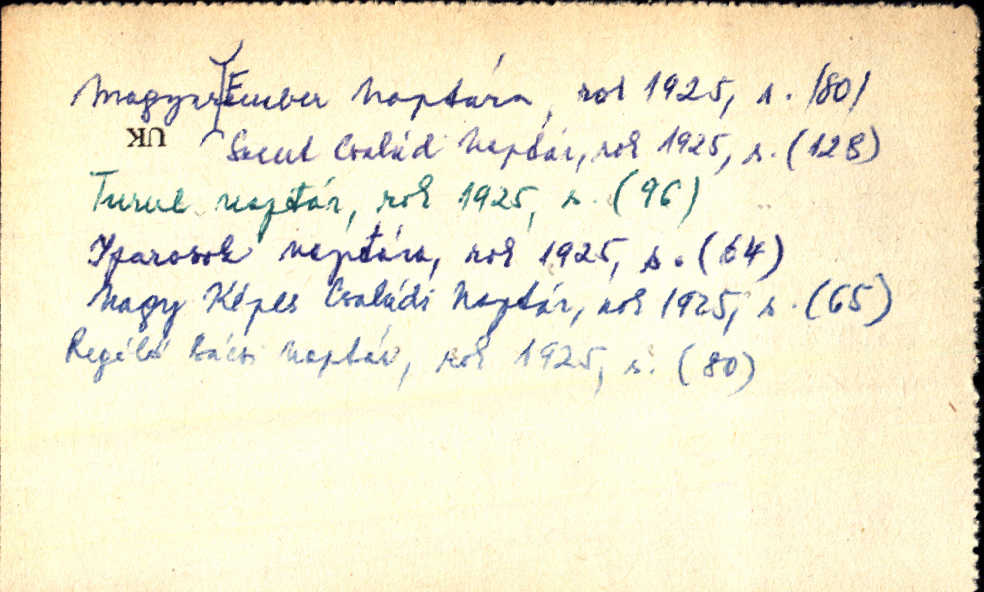 Magyar Ember Naptára, rok 1925, s. /80/
UK
Szent Család Naptár, rok 1925, s. (128)
Turul naptár, rok 1925, s. (96)
Iparosok naptára, rok 1925, s. (64)
Nagy Képes Családi Naptár, rok 1925, s. (65)
Regélő Bácsi Naptár, rok 1925, s. (80)